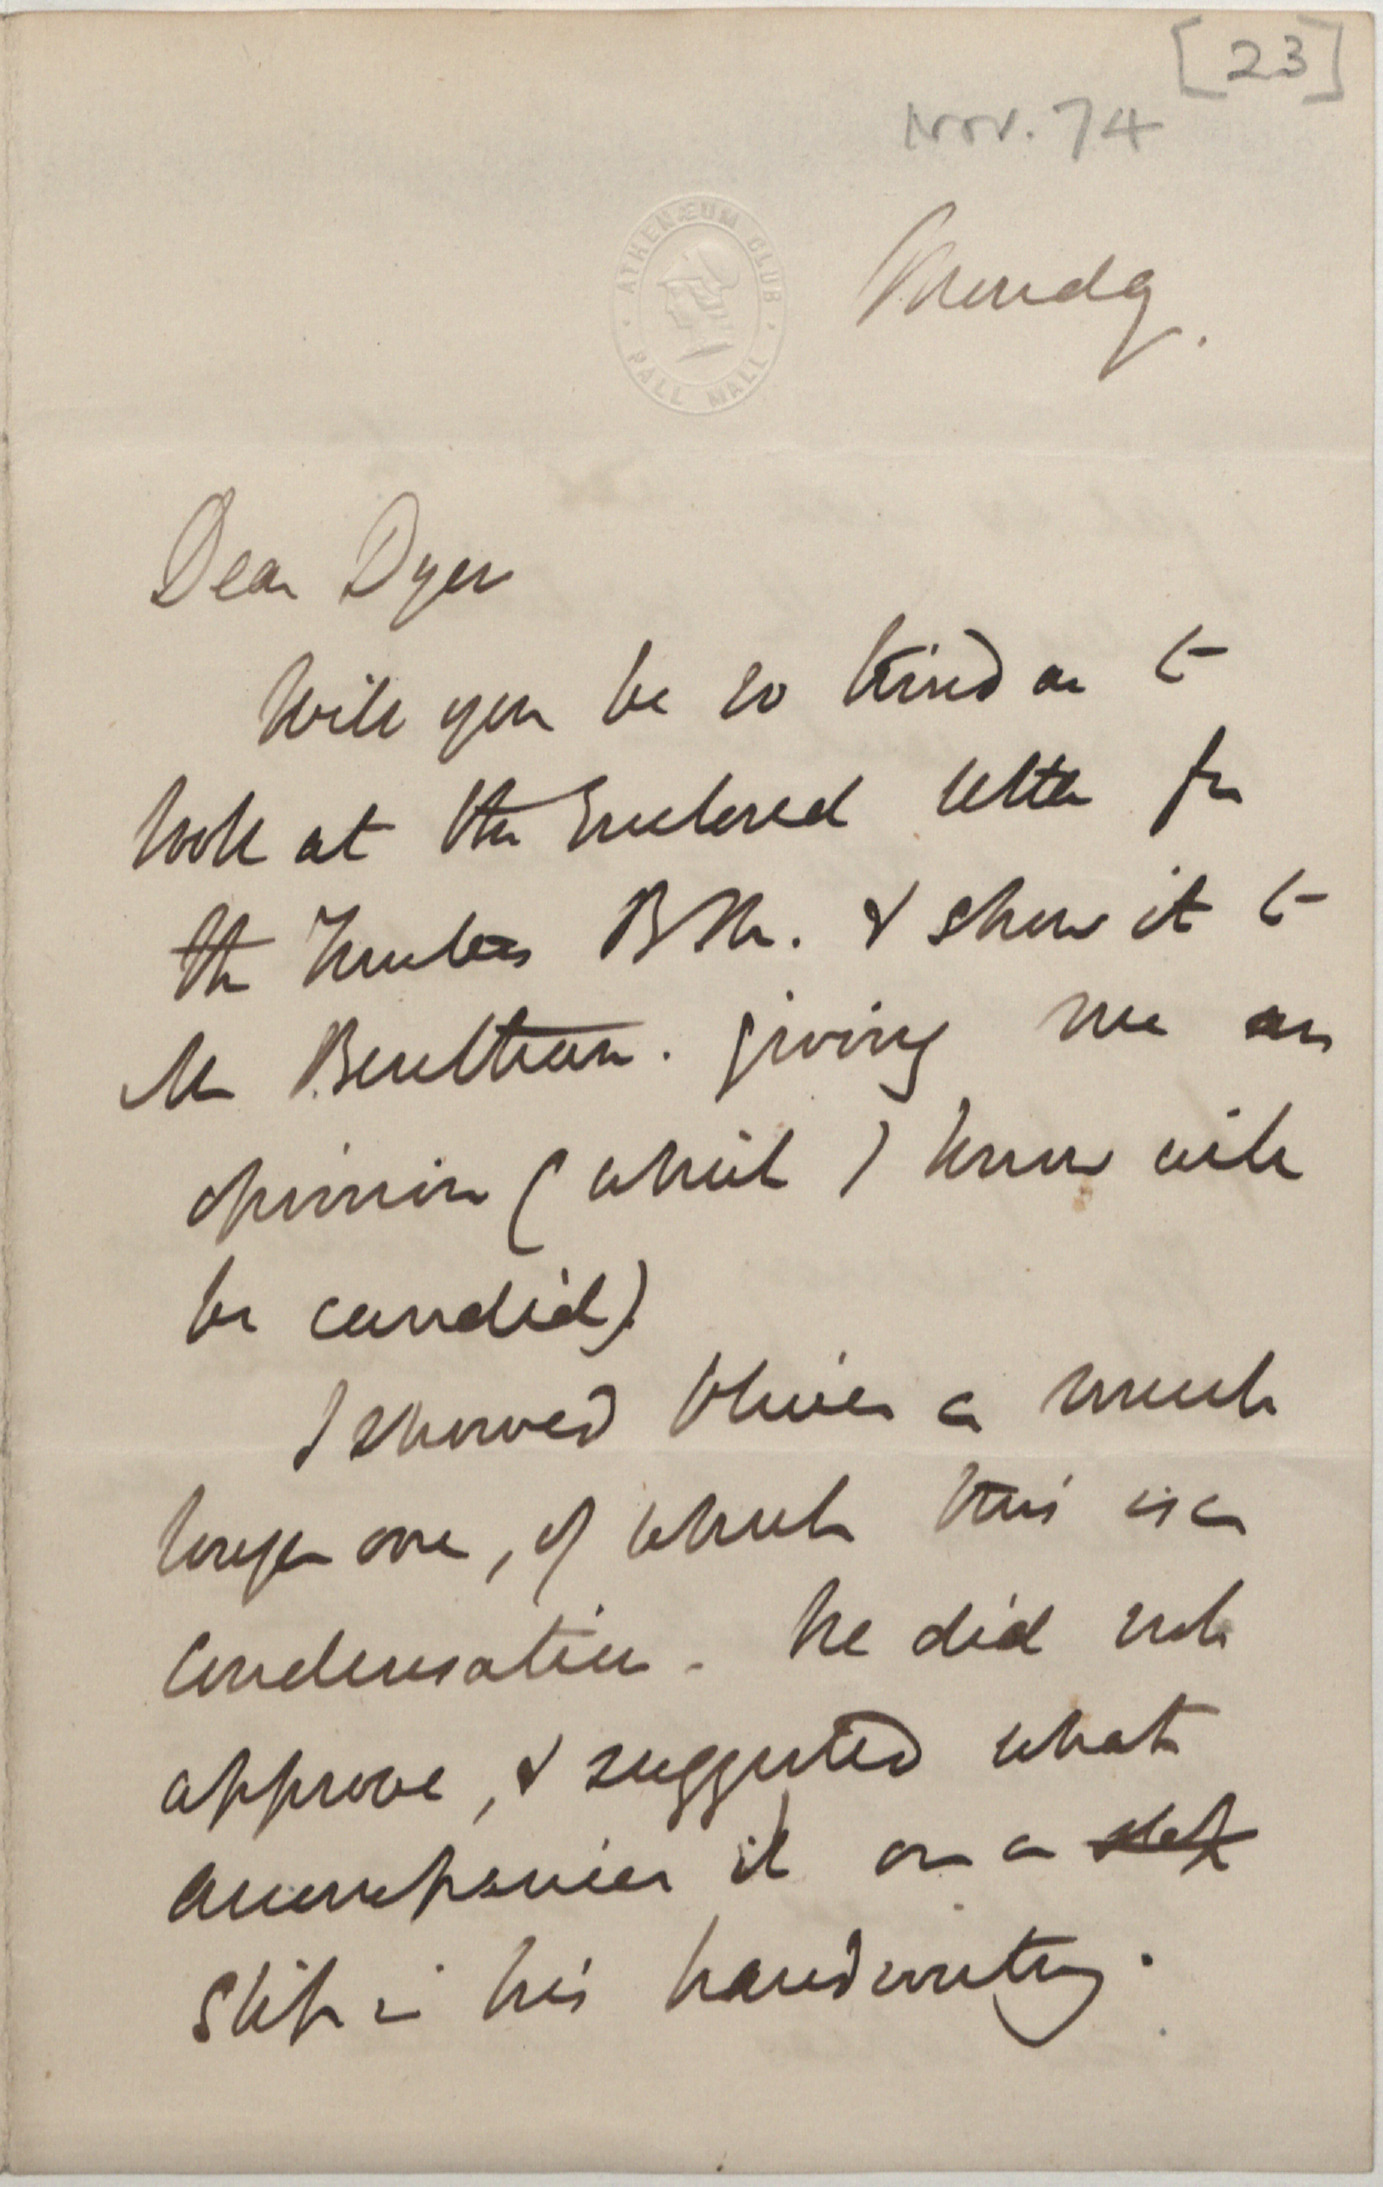 [23]
Nov. 74
ATHENÆUM CLUB
PALL MALL
Monday.
Dear Dyer
Will you be so kind as to
look at the Enclosed letter for
the Trustees B M. & show it to
Mr Bentham. giving me an
opinion (which I know will
be candid).
I showed Oliver a much
longer one, of which this is a
condensation. He did not
approve, & suggested what
accompanies it on a slip
Slip in his handwriting.